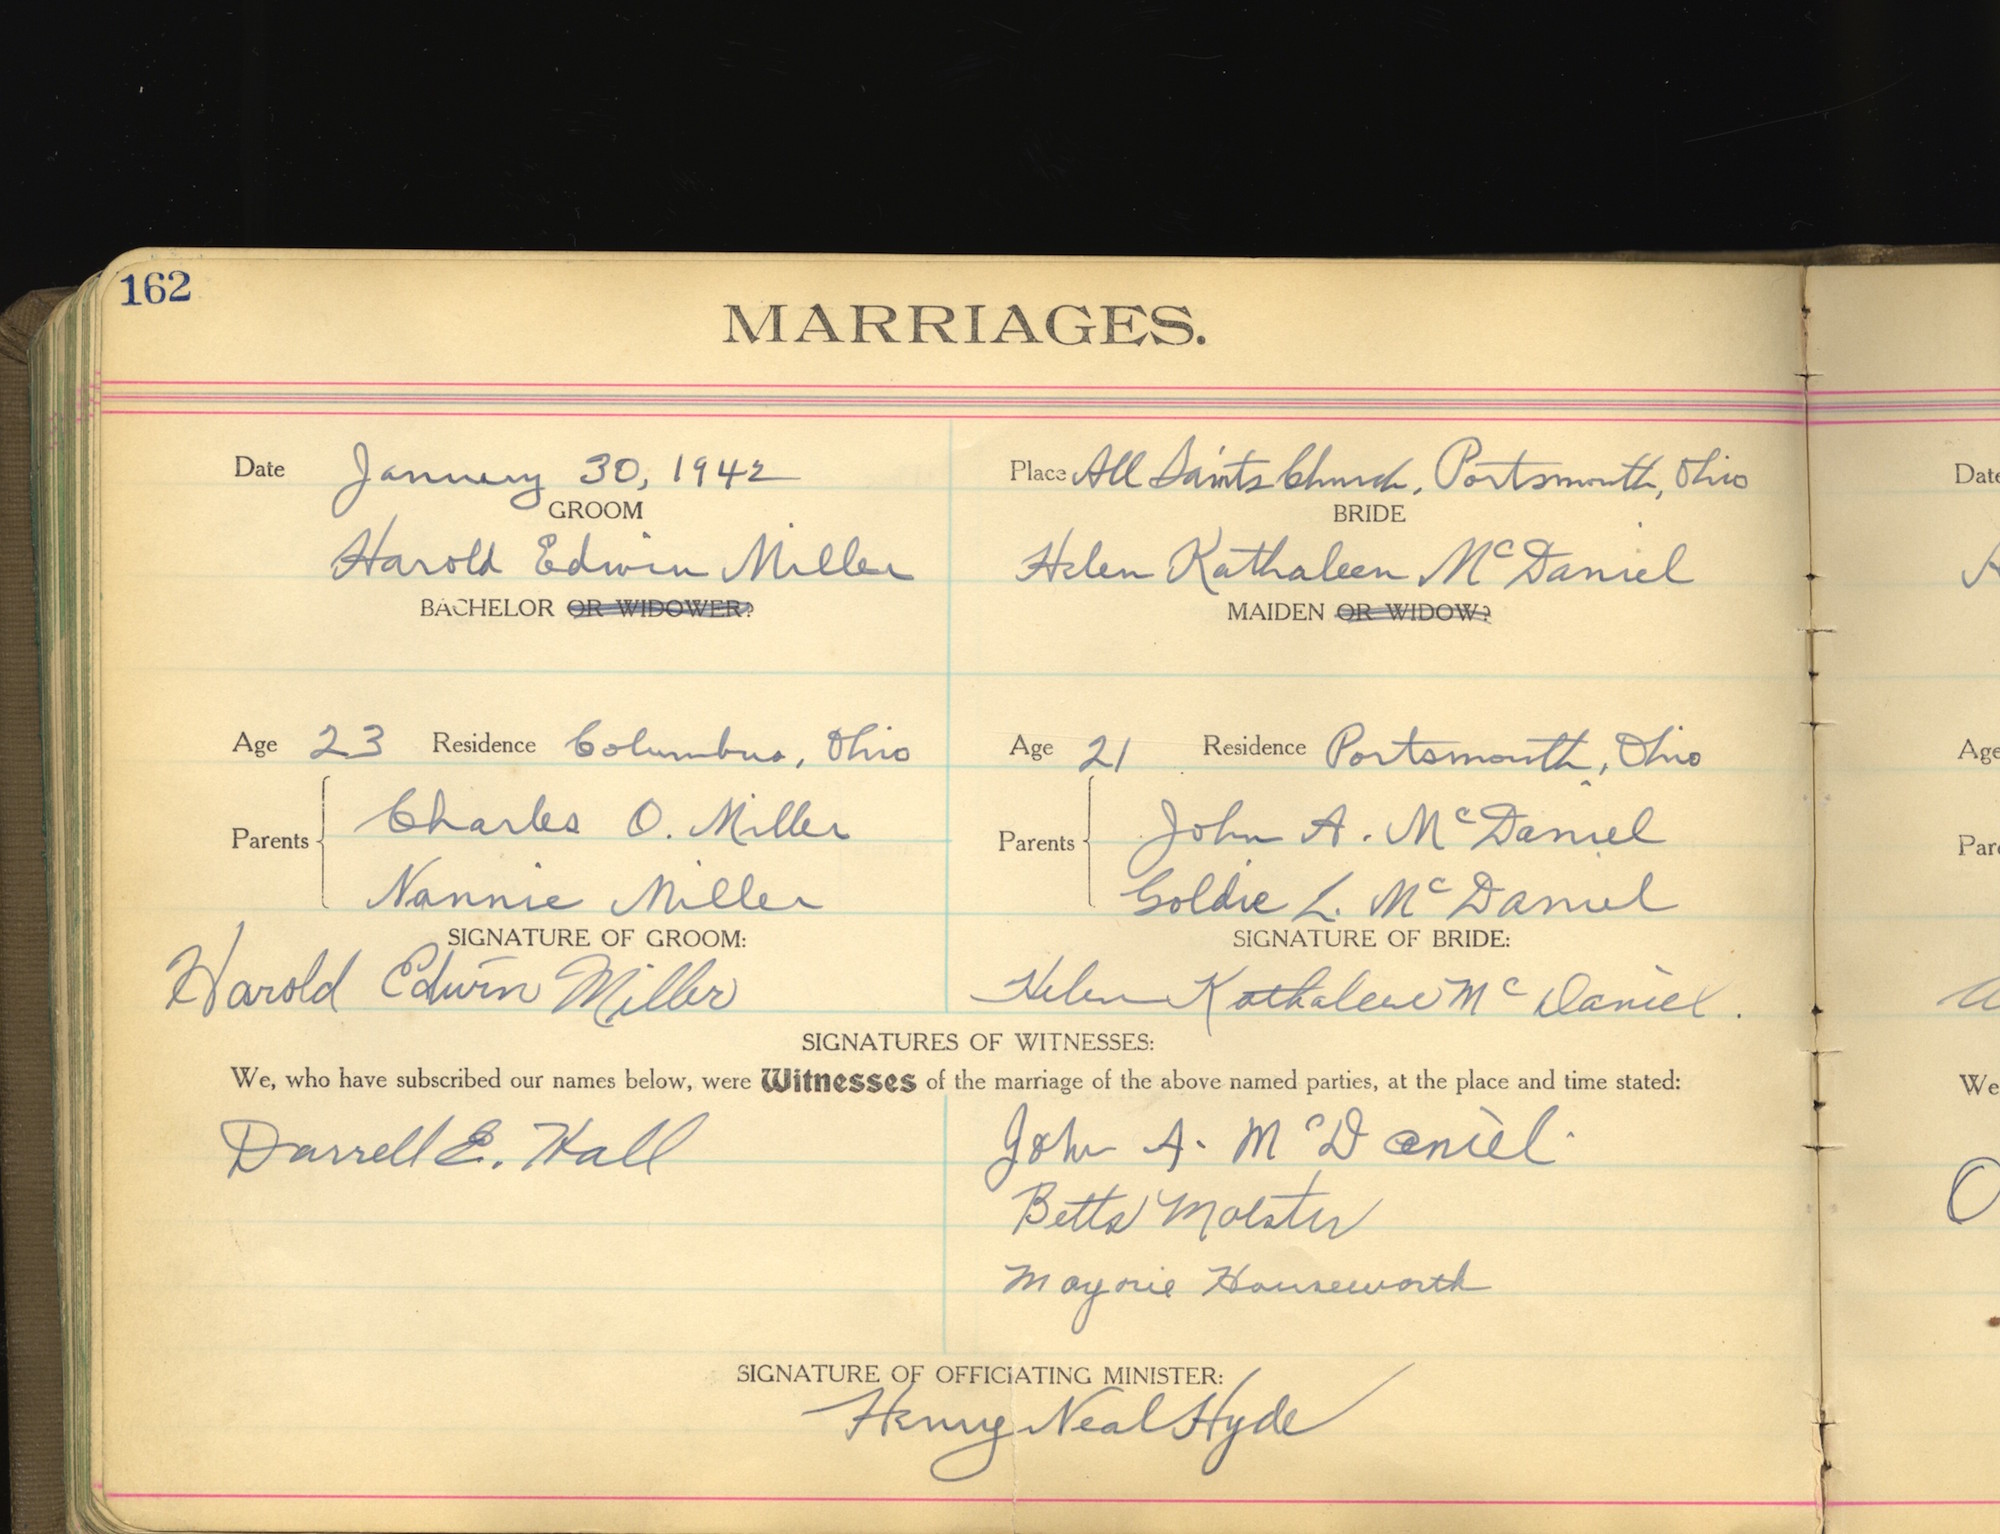 162
MARRIAGES.
Date January 30, 1942
Place All Saints Church, Portsmouth, Ohio
GROOM
BRIDE
Harold Edwin Miller
Helen Kathaleen McDaniel
BACHELOR OR WIDOWER?
MAIDEN OR WIDOW?
Age 23 Residence Columbus, Ohio
Age 21 Residence Portsmouth, Ohio
Parents
Charles O. Miller
Nannie Miller
Parents
John A. McDaniel
Goldie L. McDaniel
SIGNATURE OF GROOM:
SIGNATURE OF BRIDE:
Harold Edwin Miller
Helen Kathaleen McDaniel.
SIGNATURES OF WITNESSES:
We, who have subscribed our names below, were Witnesses of the marriage of the above named parties, at the place and time stated:
Darrell E. Hall
John A. McDaniel
Molster
Marjorie Houseworth
SIGNATURE OF OFFICIATING MINISTER:
Henry Neal Hyde
Date
Age
We